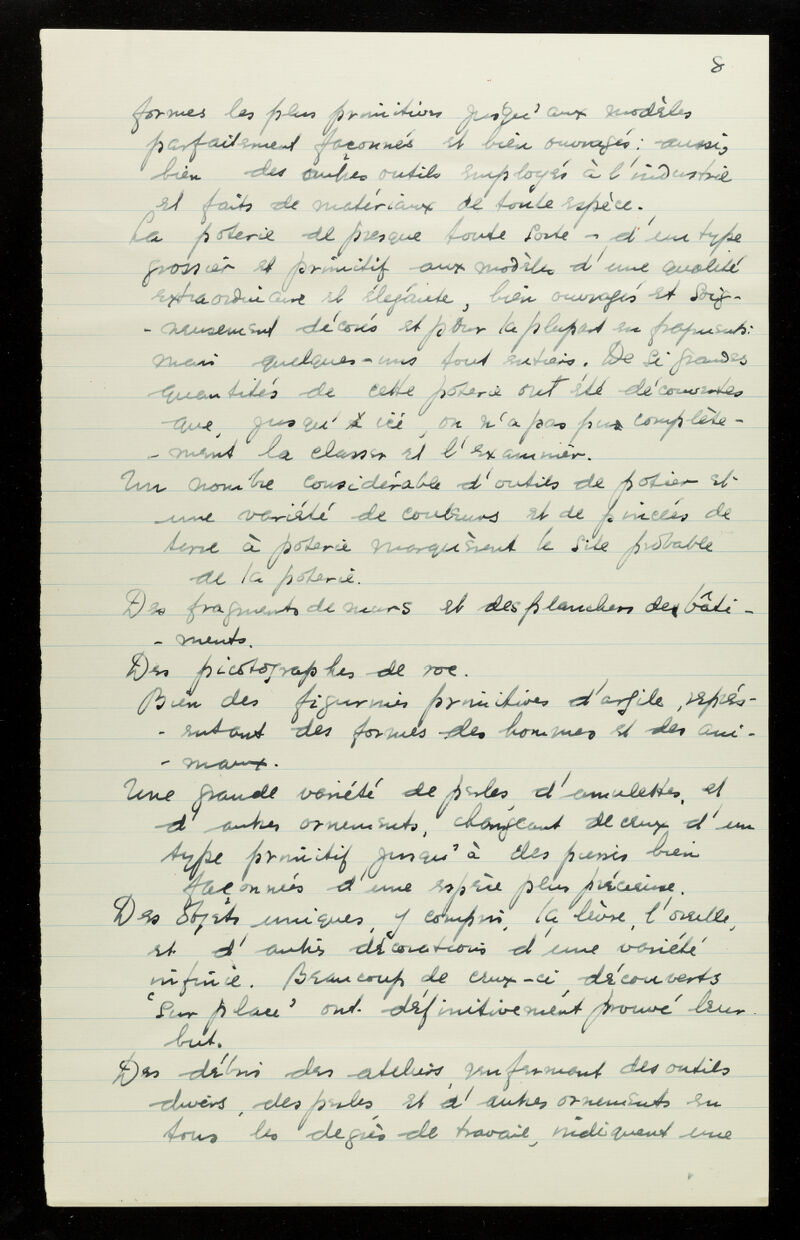 8
formes les plus primitives jusqu'aux modèles
parfaitement façonnés et bien ouvragés; aussi,
bien des autres outils employés à l'industrie
et faits de matériaux de toute espèce.
La poterie de presque toute sorte - d'un type
grossier et primitif aux modèles d'une qualité
extraordinaire et élegánte, bien ouvragés et soig-
-neusement décorés et pour la plupart en fragments:
mais quelques-uns tout entiers. De si grandes
quantités de cette poterie ont été découvertes
que, jusqu' ici, on n'a pas pu complète-
-ment la classer et l'examiner.
Un nombre considérable d'outils de potier et
une variété de couleurs et de pincées de
terre à poterie marquèrent le site probable
de la poterie.
Des fragments de murs et des planchers de bâti-
-ments.
Des picotographes de roc.
Bien des figurines primitives d'argile, représ-
-entant des formes des hommes et des ani-
-maux.
Une grande variété de perles d'amulettes, et
d'autres ornements, changeant de ceux d'un
type primitif jusqu'à des pierres bien
façonnées d'une espèce plus précieuse.
Des objets uniques, y compris, la lèvre, l'oreille,
et d'autres décorations d'une variété
infinie. Beaucoup de ceux-ci, découverts
"sur place" ont définitivement prouvé leur
but.
Des débris des ateliers, renfermant des outils
divers, des perles et d'autres ornements en
tous les degrés de travail, indiquent une